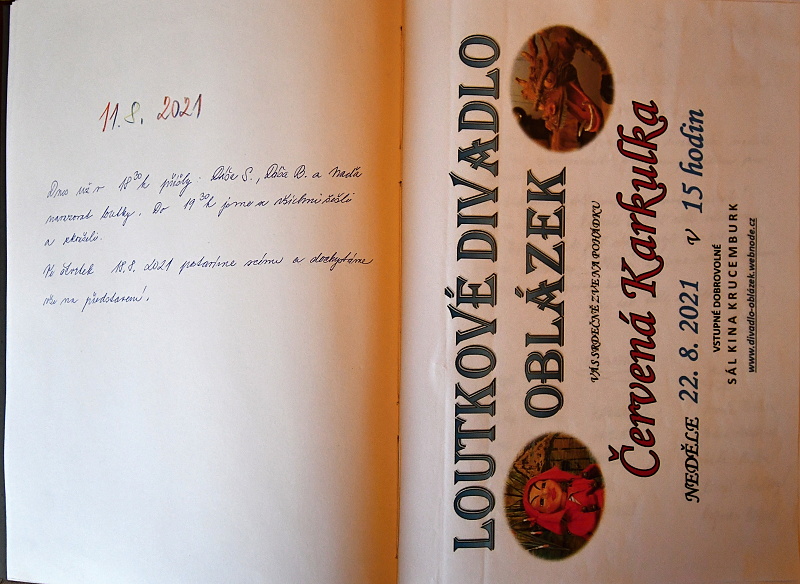 11.8. 2021
Dnes už v 18³⁰h přišly: Dáša S., Dáša B. a Naďa
navazovat loutky. Do 19³⁰h jsme se všichni sešli
a zkoušeli.
Ve čtvrtek 18.8. 2021 postavíme scénu a dochystáme
vše na představení.
LOUTKOVÉ DIVADLO
OBLÁZEK
VÁS SRDEČNĚ ZVE NA POHÁDKU
Červená Karkulka
NEDĚLE 22. 8. 2021 v 15 hodin
VSTUPNÉ DOBROVOLNÉ
SÁL KINA KRUCEMBURK
www.divadlo-oblázek.webnode.cz